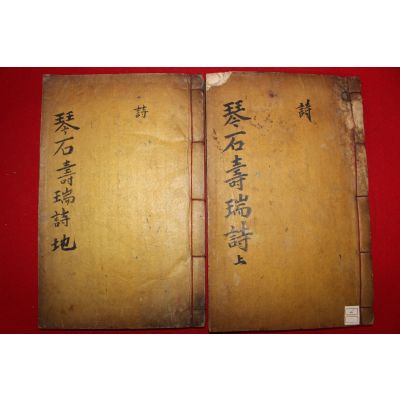 詩
琴石壽瑞詩上
詩
琴石壽瑞詩地